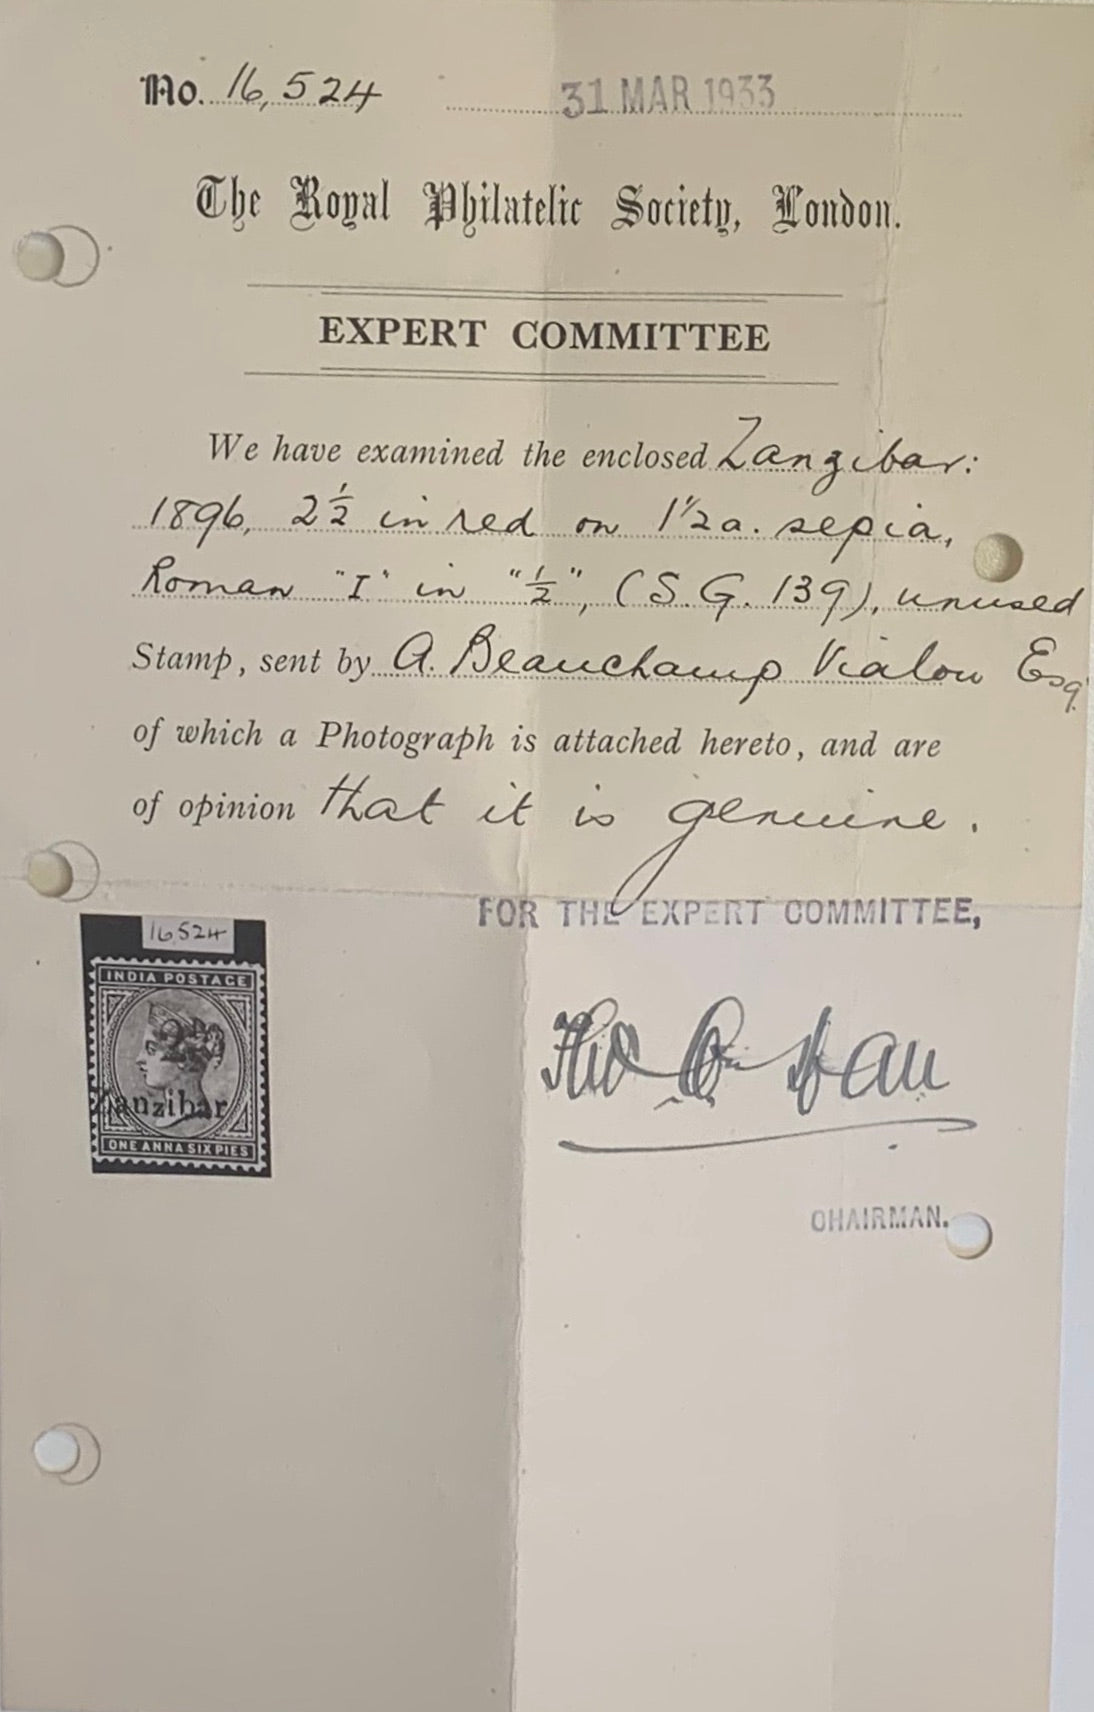 No. 16,524 31 MAR 1933
The Royal Philatelic Society, London.
EXPERT COMMITTEE
We have examined the enclosed Zanzibar:
1896, 2½ in red on 1½a. sepia,
Roman "I" in "½", (S.G. 139), unused
Stamp, sent by A. Beauchamp Vialou Esq.
of which a Photograph is attached hereto, and are
of opinion that it is genuine.
FOR THE EXPERT COMMITTEE,
16,524
INDIA POSTAGE
Zanzibar
ONE ANNA SIX PIES
CHAIRMAN.